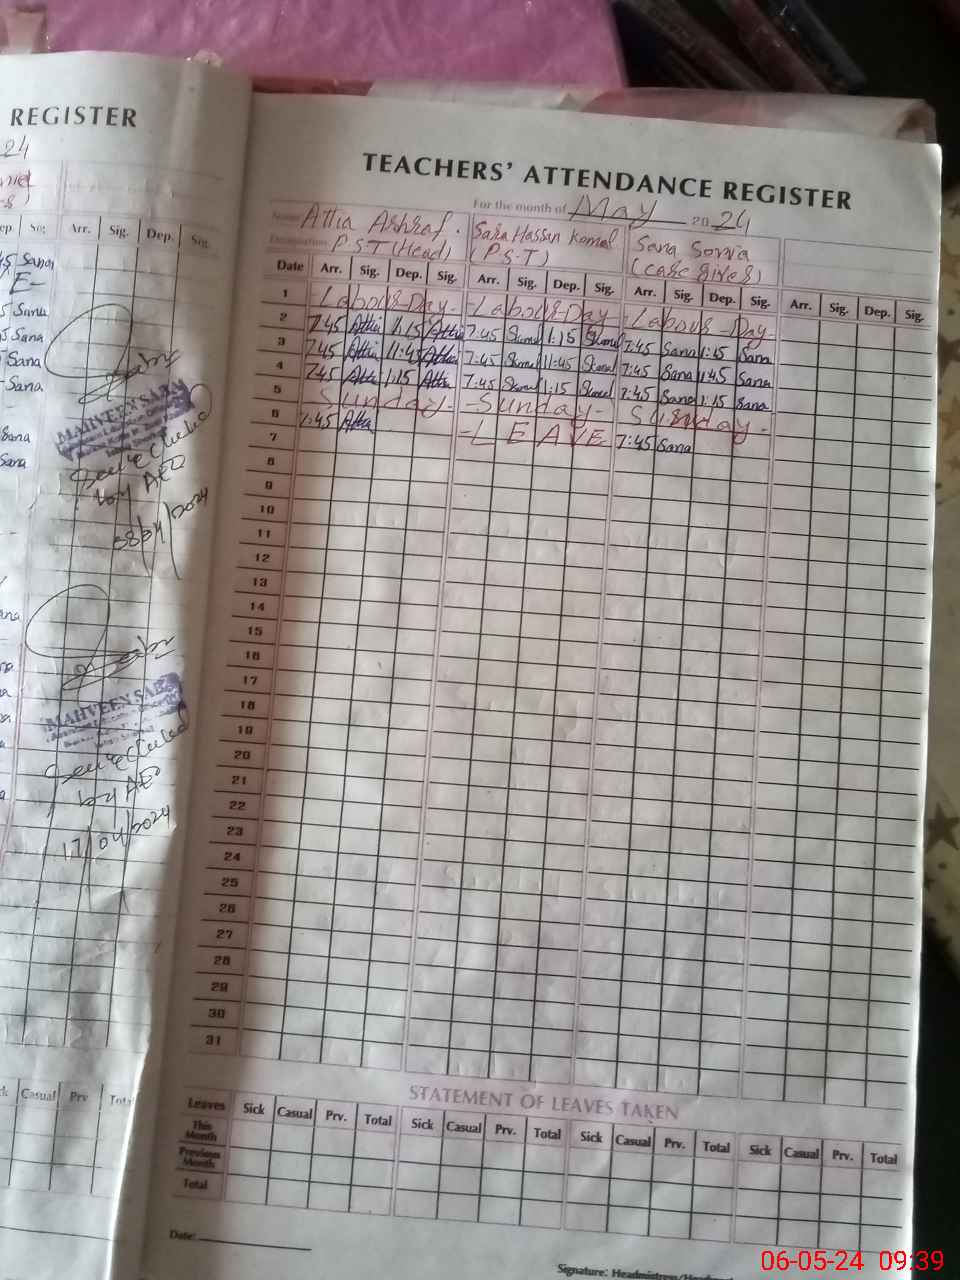 REGISTER
24
Arr. Sig. Dep. Sig.
Sana
E-
Sana
Sana
Sana
Sana
Sana
Sana
MAHVEEN SABA
by AEO
08/04/2024
MAHVEEN SABA
by AEO
17/04/2024
Casual Prv
TEACHERS' ATTENDANCE REGISTER
For the month of May 2024
Name Attia Ashraf. Sara Hassan Komal Sana Somia
Designation P.S.T (Head) (P.S.T) (care giver)
Date Arr. Sig. Dep. Sig. Arr. Sig. Dep. Sig. Arr. Sig. Dep. Sig. Arr. Sig. Dep. Sig.
1 Labour Day - Labour Day - Labour Day -
2 7:45 Attia 1:15 Attia 7:45 Skomal 1:15 Skomal 7:45 Sana 1:15 Sana
3 7:45 Attia 11:45 Attia 7:45 Skomal 11:45 Skomal 7:45 Sana 11:45 Sana
4 7:45 Attia 1:15 Attia 7:45 Skomal 1:15 Skomal 7:45 Sana 1:15 Sana
5 Sunday - Sunday - Sunday -
6 7:45 Attia - LEAVE 7:45 Sana
7
8
9
10
11
12
13
14
15
16
17
18
19
20
21
22
23
24
25
26
27
28
29
30
31
STATEMENT OF LEAVES TAKEN
Leaves Sick Casual Prv. Total Sick Casual Prv. Total Sick Casual Prv. Total Sick Casual Prv. Total
This Month
Previous Month
Total
Date:
Signature: Headmistress/
06-05-24 09:39